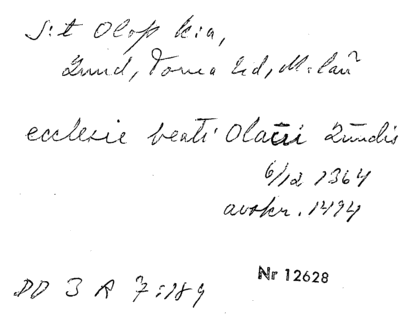 S:t Olofs k:a,
Lund, Torna hd, M-län
ecclesie beati Olaui Lundis
6/12 1364
avskr. 1494
DD 3 A 7:189
Nr 12628